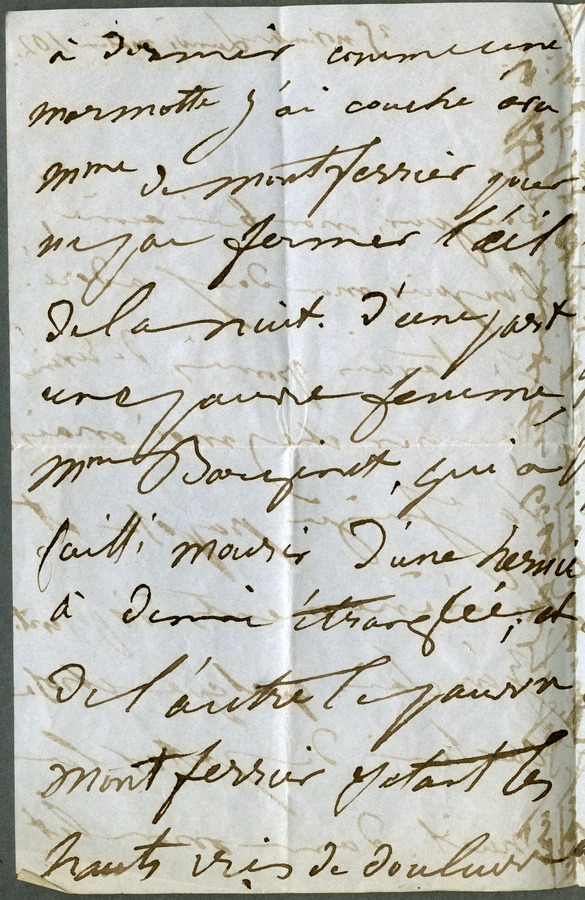 à dormir comme une
marmotte j'ai couché avec
mme de montferrier pour
ne pas fermer l'œil
de la nuit. d'une part
une pauvre femme,
mme qui a
failli mourir d'une hernie
à demi étranglée, et
de l'autre le pauvre
montferrier jetant les
hauts cris de douleur